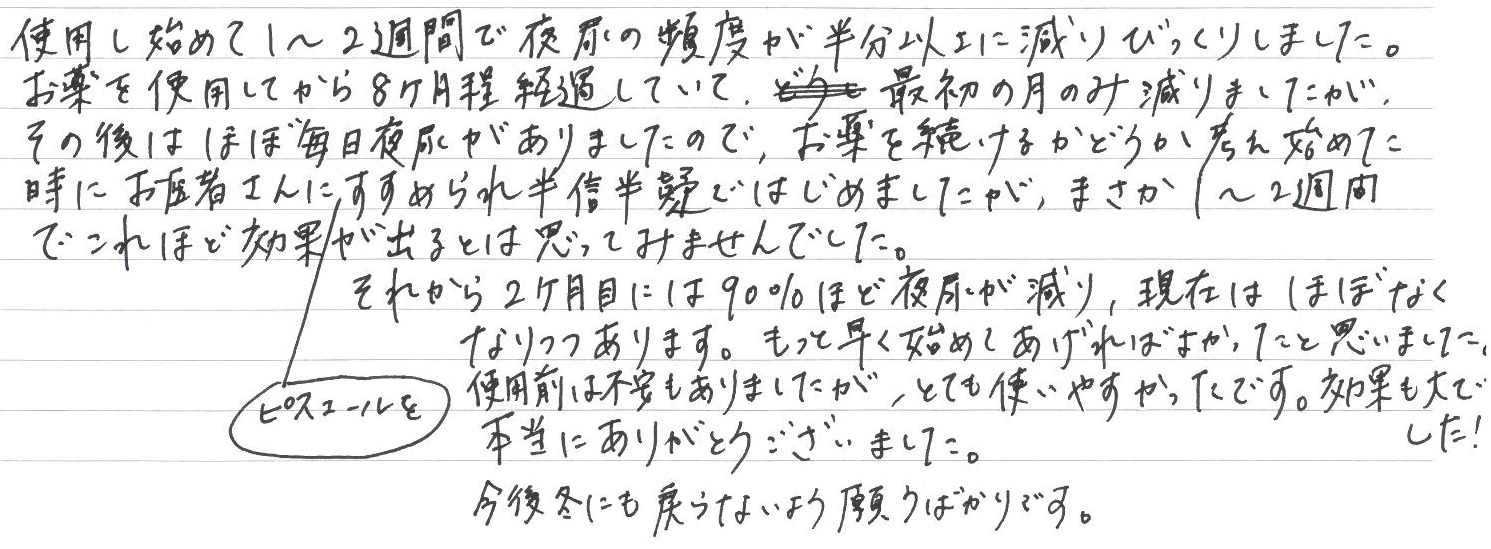 使用し始めて1〜2週間で夜尿の頻度が半分以上に減りびっくりしました。
お薬を使用してから8ヶ月程経過していて、最初の月のみ減りましたが、
その後はほぼ毎日夜尿がありましたので、お薬を続けるかどうか考え始めた
時にお医者さんにすすめられ半信半疑ではじめましたが、まさか1〜2週間
でこれほど効果が出るとは思ってみませんでした。
それから2ヶ月目には90%ほど夜尿が減り、現在はほぼなく
なりつつあります。もっと早く始めてあげればよかったと思いました。
使用前は不安もありましたが、とても使いやすかったです。効果も大で
した!
ピスコールを
本当にありがとうございました。
今後冬にも戻らないよう願うばかりです。